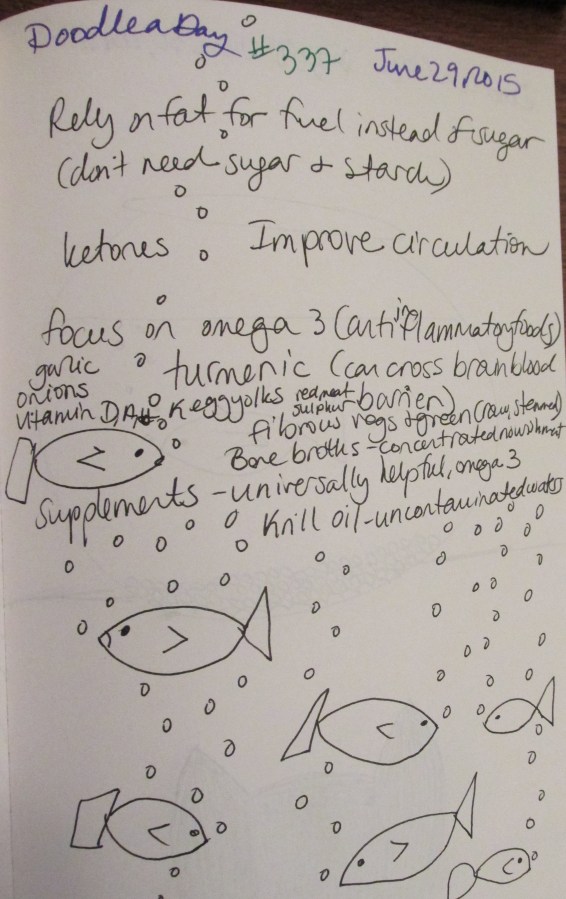 Doodle a Day #337 June 29, 2015
Rely on fat for fuel instead of sugar
(don't need sugar + starch)
ketones Improve circulation
focus on omega 3 (antiinflammatory foods)
garlic turmenic (can cross brain blood
onions barrier)
Vitamin D, A, K egg yolks red meat sulphur
fibrous vegs + green (raw, steamed)
Bone broths - concentrated nourishment
Supplements - universally helpful, omega 3
Krill oil - uncontaminated waters